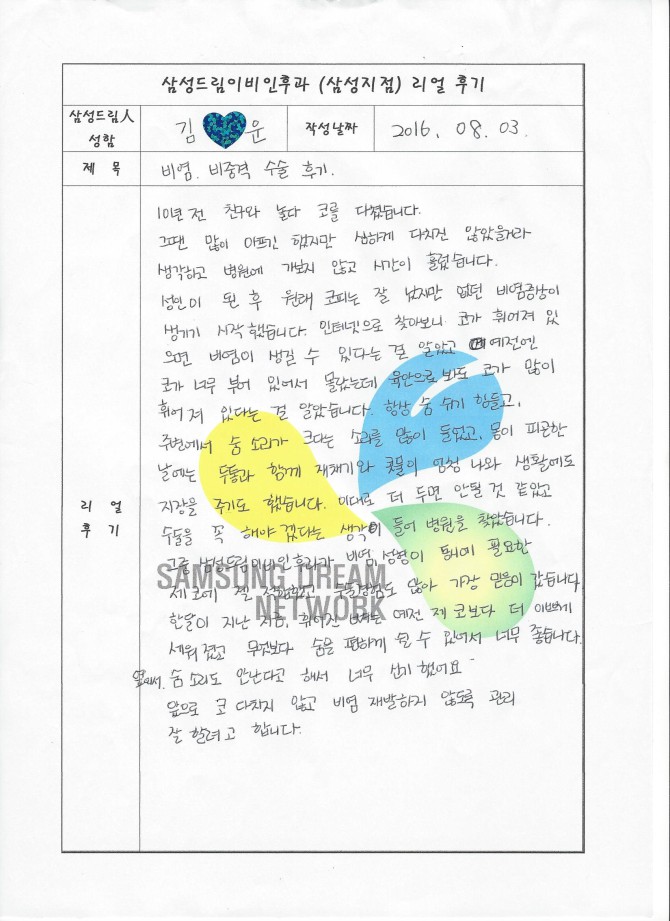 삼성드림이비인후과 (삼성지점) 리얼 후기
삼성드림人
성함
김 윤
작성날짜
2016. 08. 03.
제 목
비염. 비중격 수술 후기.
10년 전 친구와 놀다 코를 다쳤습니다.
그땐 많이 아프긴 했지만 심하게 다치진 않았을거라
생각하고 병원에 가보지 않고 시간이 흘렀습니다.
성인이 된 후 원래 코피는 잘 났지만 없던 비염증상이
생기기 시작했습니다. 인터넷으로 찾아보니 코가 휘어져 있
으면 비염이 생길 수 있다는 걸 알았고 예전엔
코가 너무 부어 있어서 몰랐는데 육안으로 봐도 코가 많이
휘어져 있다는 걸 알았습니다. 항상 숨 쉬기 힘들고,
주변에서 숨 소리가 크다는 소리를 많이 들었고, 몸이 피곤한
날에는 두통과 함께 재채기와 콧물이 엄청 나와 생활에도
리 얼
후 기
지장을 주기도 했습니다. 이대로 더 두면 안될 것 같았고
수술을 꼭 해야겠다는 생각이 들어 병원을 찾았습니다.
그중 삼성드림이비인후과가 비염, 성형이 동시에 필요한
제 코에 제일 적합하고 수술경험도 많아 가장 믿음이 갔습니다
SAMSUNG DREAM
NETWORK
한달이 지난 지금, 휘어진 예전 제 코보다 더 이쁘게
세워졌고 무엇보다 숨을 편하게 쉴 수 있어서 너무 좋습니다.
옆에서 숨 소리도 안난다고 해서 너무 신기했어요
앞으로 코 다치지 않고 비염 재발하지 않도록 관리
잘 할려고 합니다.